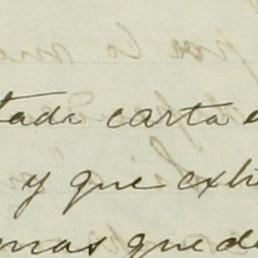 tada carta
y que exhi
mas que de